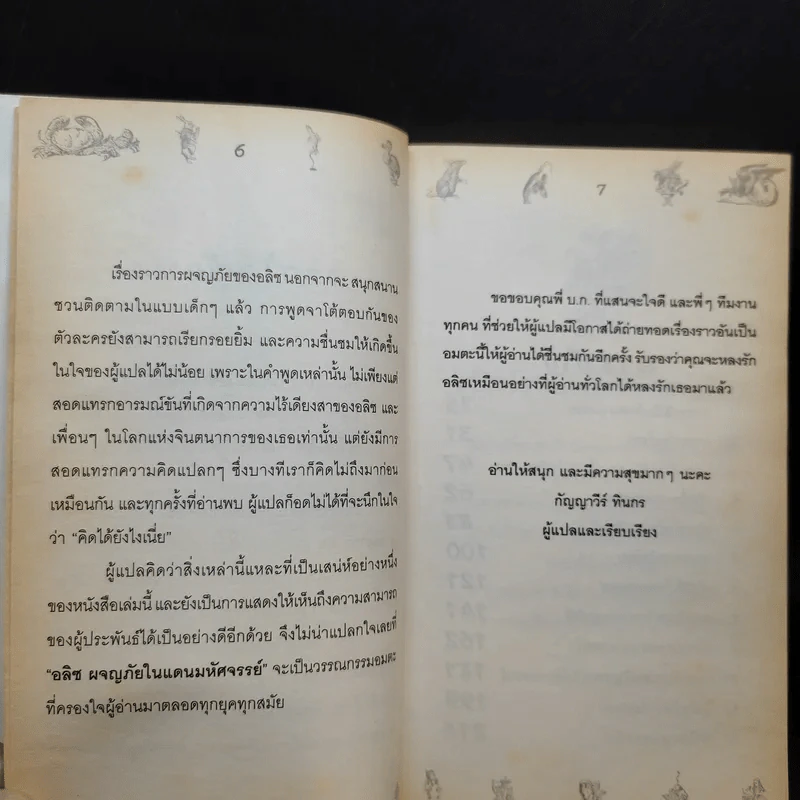 6
เรื่องราวการผจญภัยของอลิซ นอกจากจะ สนุกสนาน
ชวนติดตามในแบบเด็กๆ แล้ว การพูดจาโต้ตอบกันของ
ตัวละครยังสามารถเรียกรอยยิ้ม และความชื่นชมให้เกิดขึ้น
ในใจของผู้แปลได้ไม่น้อย เพราะในคำพูดเหล่านั้น ไม่เพียงแต่
สอดแทรกอารมณ์ขันที่เกิดจากความไร้เดียงสาของอลิซ และ
เพื่อนๆ ในโลกแห่งจินตนาการของเธอเท่านั้น แต่ยังมีการ
สอดแทรกความคิดแปลกๆ ซึ่งบางทีเราก็คิดไม่ถึงมาก่อน
เหมือนกัน และทุกครั้งที่อ่านพบ ผู้แปลก็อดไม่ได้ที่จะนึกในใจ
ว่า “คิดได้ยังไงเนี่ย”
ผู้แปลคิดว่าสิ่งเหล่านี้แหละที่เป็นเสน่ห์อย่างหนึ่ง
ของหนังสือเล่มนี้ และยังเป็นการแสดงให้เห็นถึงความสามารถ
ของผู้ประพันธ์ได้เป็นอย่างดีอีกด้วย จึงไม่น่าแปลกใจเลยที่
“อลิซ ผจญภัยในแดนมหัศจรรย์” จะเป็นวรรณกรรมอมตะ
ที่ครองใจผู้อ่านมาตลอดทุกยุคทุกสมัย
7
ขอขอบคุณพี่ บ.ก. ที่แสนจะใจดี และพี่ๆ ทีมงาน
ทุกคน ที่ช่วยให้ผู้แปลมีโอกาสได้ถ่ายทอดเรื่องราวอันเป็น
อมตะนี้ให้ผู้อ่านได้ชื่นชมกันอีกครั้ง รับรองว่าคุณจะหลงรัก
อลิซเหมือนอย่างที่ผู้อ่านทั่วโลกได้หลงรักเธอมาแล้ว
อ่านให้สนุก และมีความสุขมาก ๆ นะคะ
กัญญาวีร์ ทินกร
ผู้แปลและเรียบเรียง